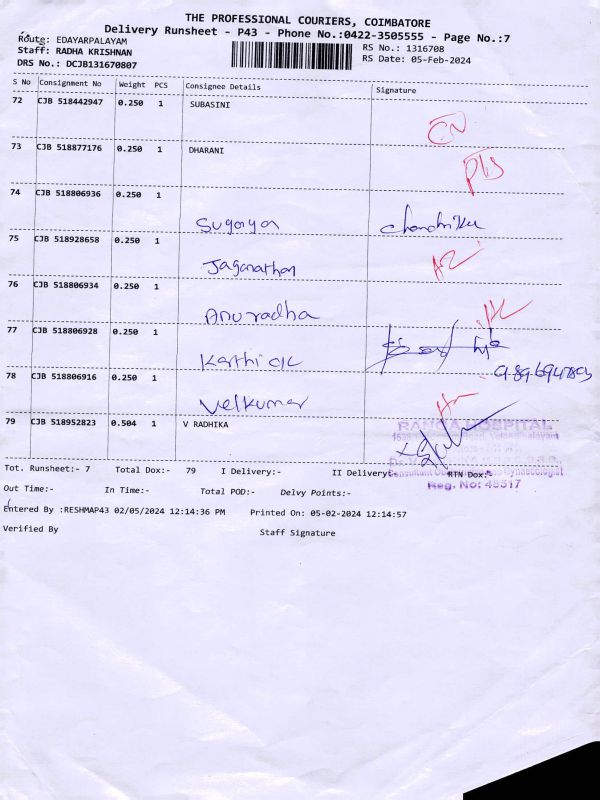 THE PROFESSIONAL COURIERS, COIMBATORE
Delivery Runsheet - P43 - Phone No.:0422-3505555 - Page No.:7
Route: EDAYARPALAYAM
RS No.: 1316708
Staff: RADHA KRISHNAN
RS Date: 05-Feb-2024
DRS No.: DCJB131670807
S No Consignment No Weight PCS Consignee Details Signature
72 CJB 518442947 0.250 1 SUBASINI
73 CJB 518877176 0.250 1 DHARANI
74 CJB 518806936 0.250 1
Chandrika
75 CJB 518928658 0.250 1
Jaganathan
76 CJB 518806934 0.250 1
Anuradha
77 CJB 518806928 0.250 1
Karthick
78 CJB 518806916 0.250 1
Velkumar
79 CJB 518952823 0.504 1 V RADHIKA
RANGA HOSPITAL
Tot. Runsheet:- 7 Total Dox:- 79 I Delivery:- II Delivery:- RTN Dox:-
Reg. No: 48517
Out Time:- In Time:- Total POD:- Delvy Points:-
Entered By :RESHMAP43 02/05/2024 12:14:36 PM Printed On: 05-02-2024 12:14:57
Verified By Staff Signature